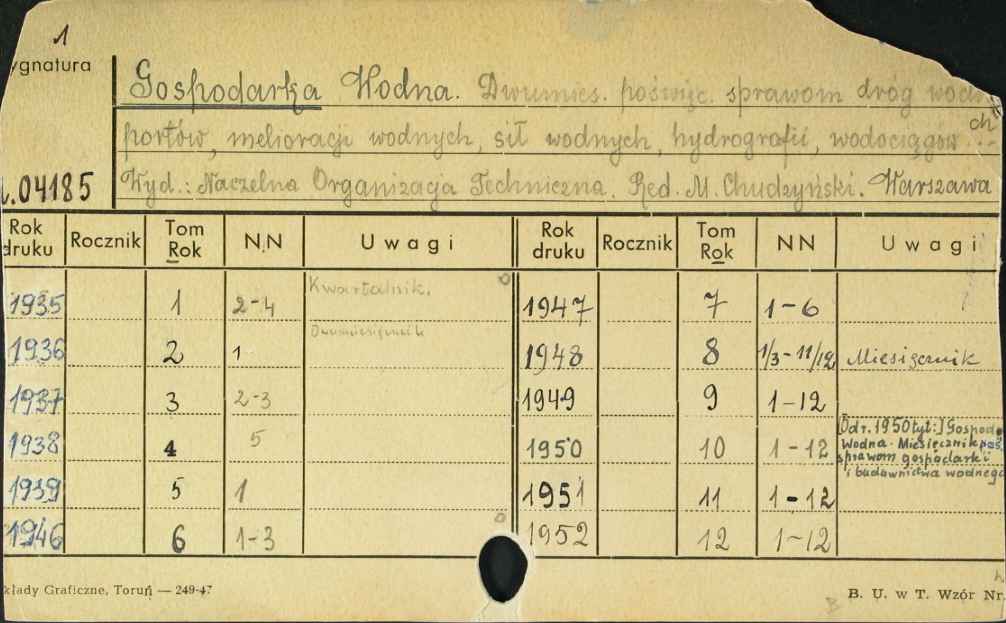 1
ygnatura
Gospodarka Wodna. Dwumies. poświęc. sprawom dróg wodn
ch
portów, melioracji wodnych, sił wodnych, hydrografii, wodociągów...
.04185
Wyd.: Naczelna Organizacja Techniczna. Red. M. Chudzyński. Warszawa
Rok druku Rocznik Tom Rok N.N Uwagi Rok druku Rocznik Tom Rok NN Uwagi
1935 1 2-4 Kwartalnik. 1947 7 1-6
Dwumiesięcznik
1936 2 1 1948 8 1/3-11/12 Miesięcznik
1937 3 2-3 1949 9 1-12
1938 4 5 1950 10 1-12 [Od r. 1950 tyt:] Gospod.
Wodna. Miesięcznik poś.
sprawom gospodarki
i budownictwa wodnego
1939 5 1 1951 11 1-12
1946 6 1-3 1952 12 1-12
kłady Graficzne, Toruń — 249-47
B. U. w T. Wzór Nr.